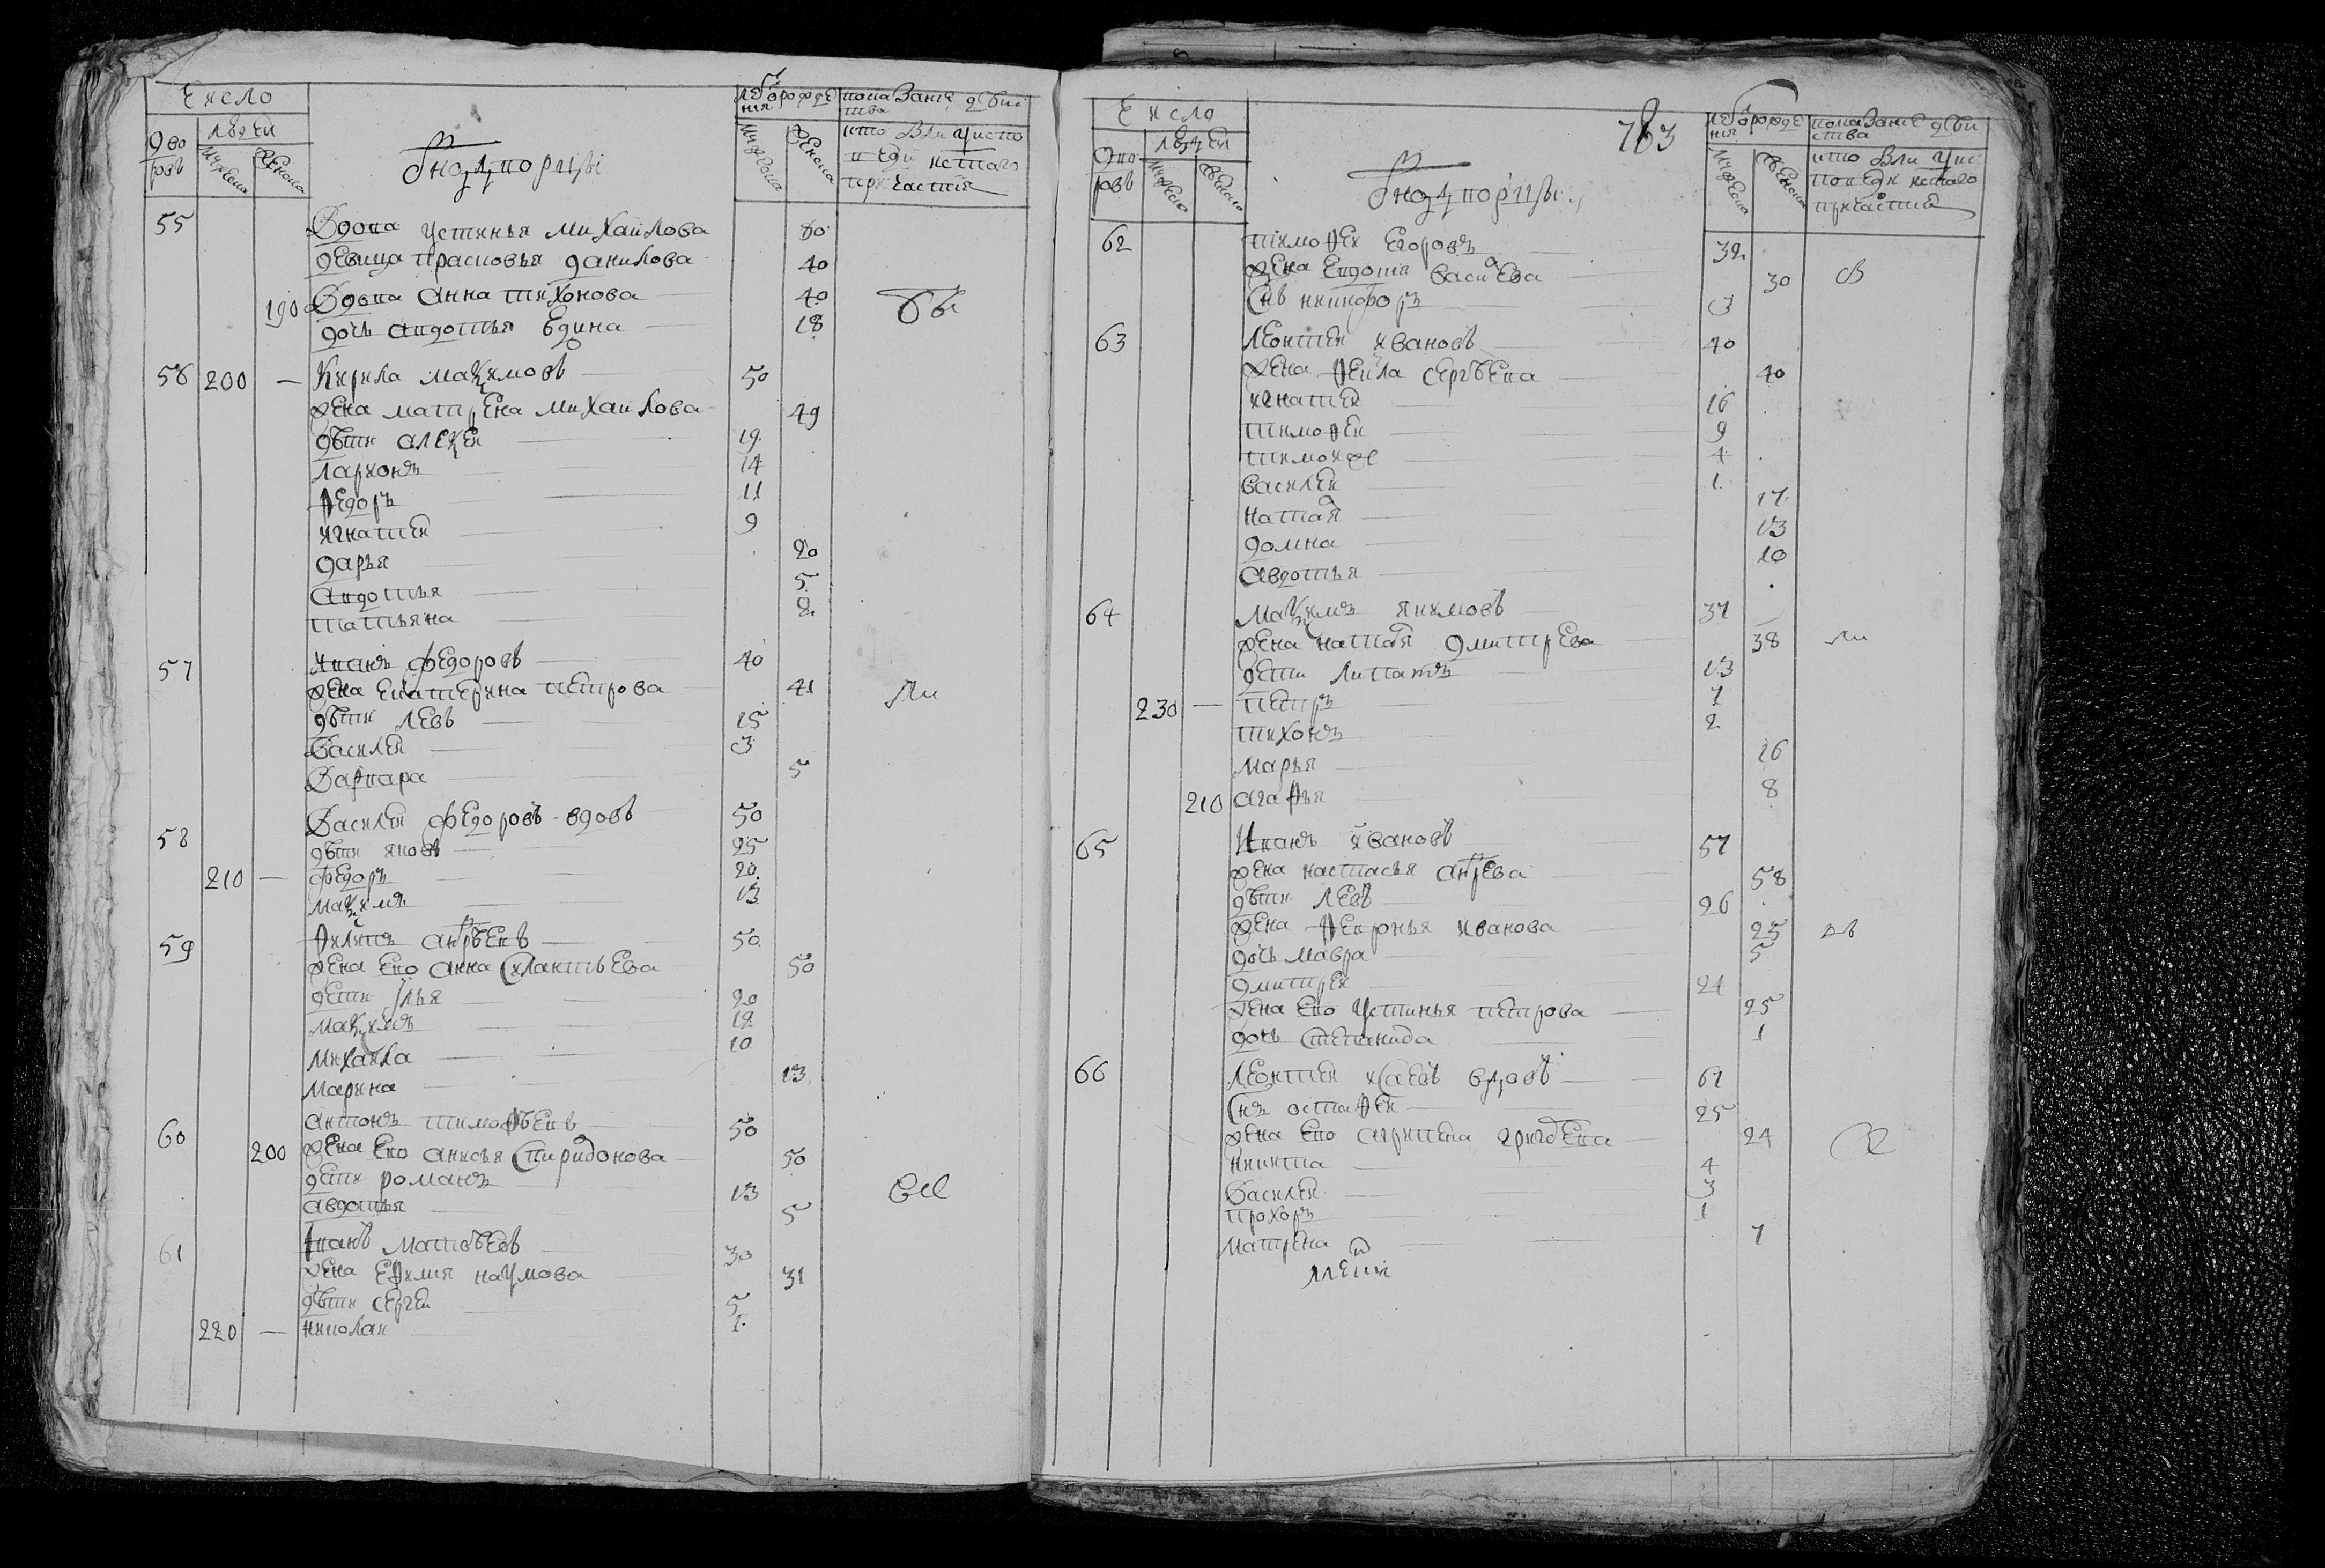 Число
лѣта рожде
ния
показание дѣйс
тва
дво
ровъ
людей
мужеска
женска
мужеска
женска
кто были у испо
веди и с̃таго
причастия
Однодворцы
55
Вдова Устинья Михайлова 80
девица Прасковья Данилова 40
190 Вдова Анна Тихонова 40
дочь Авдотья Едина 18
бы
56 200 — Кирила Маѯимовъ 50
жена Матрена Михайлова 49
дѣти Алеѯеи 19
Ларионъ 14
Ѳедоръ 11
Игнатеи 9
Дарья 20
Авдотья 5
Татьяна 2
57 Иванъ Федоровъ 40
жена Екатерина Петрова 41
ли
дѣти Левъ 15
Василеи 3
Варвара 5
58 Василеи Федоровъ вдовъ 50
дѣти Яковъ 25
210 — Федоръ 20
Маѯимъ 13
59 Ѳилипъ Андрѣевъ 50
жена ево Анна Силантьева 50
дети Илья 20
Маѯимъ 12
Михаила 10
Марина 13
60 Антонъ Тимоѳѣевъ 50
200 жена ево Анисья Спиридонова 50
дети Романъ 13
Авдотья 5
61 Иванъ Матвѣевъ 30
жена Еѳимия Наумова 31
дѣти Сергеи 5
220 — Николаи 1
Число
783
лѣта рожде
ния
показание дѣйс
тва
дво
ровъ
людей
мужеска
женска
мужеска
женска
кто были у ис
поведи и с̃таго
причастия
Однодворцы
62 Тимоѳеи Егоровъ 32
жена Евдокия Василева 30
сн̃ъ Никифоръ 3
63 Леонтеи Ивановъ 40
жена Ѳекла Сергѣева 40
Игнатеи 16
Тимоѳеи 9
Тимоѳеи 4
Василеи 1
Наталя 17
Домна 13
Авдотья 10
64 Маѯимъ Якимовъ 37
жена Наталя Дмитрева 38
ли
дети Липатъ 13
230 — Петръ 7
Тихонъ 2
Марья 16
210 Агаѳья 8
65 Иванъ Ивановъ 57
жена Настасья Андрева 58
дѣти Левъ 26
жена Ѳевронья Иванова 25
дочь Мавра 5
Дмитреи 24
жена ево Устинья Петрова 25
дочь Степанида 1
66 Леонтеи Исаевъ вдовъ 61
сн̃ъ Остаѳеи 25
жена ево Агрипена Григорева 24
Никита 4
Василеи 3
Прохоръ 1
Матрена 7